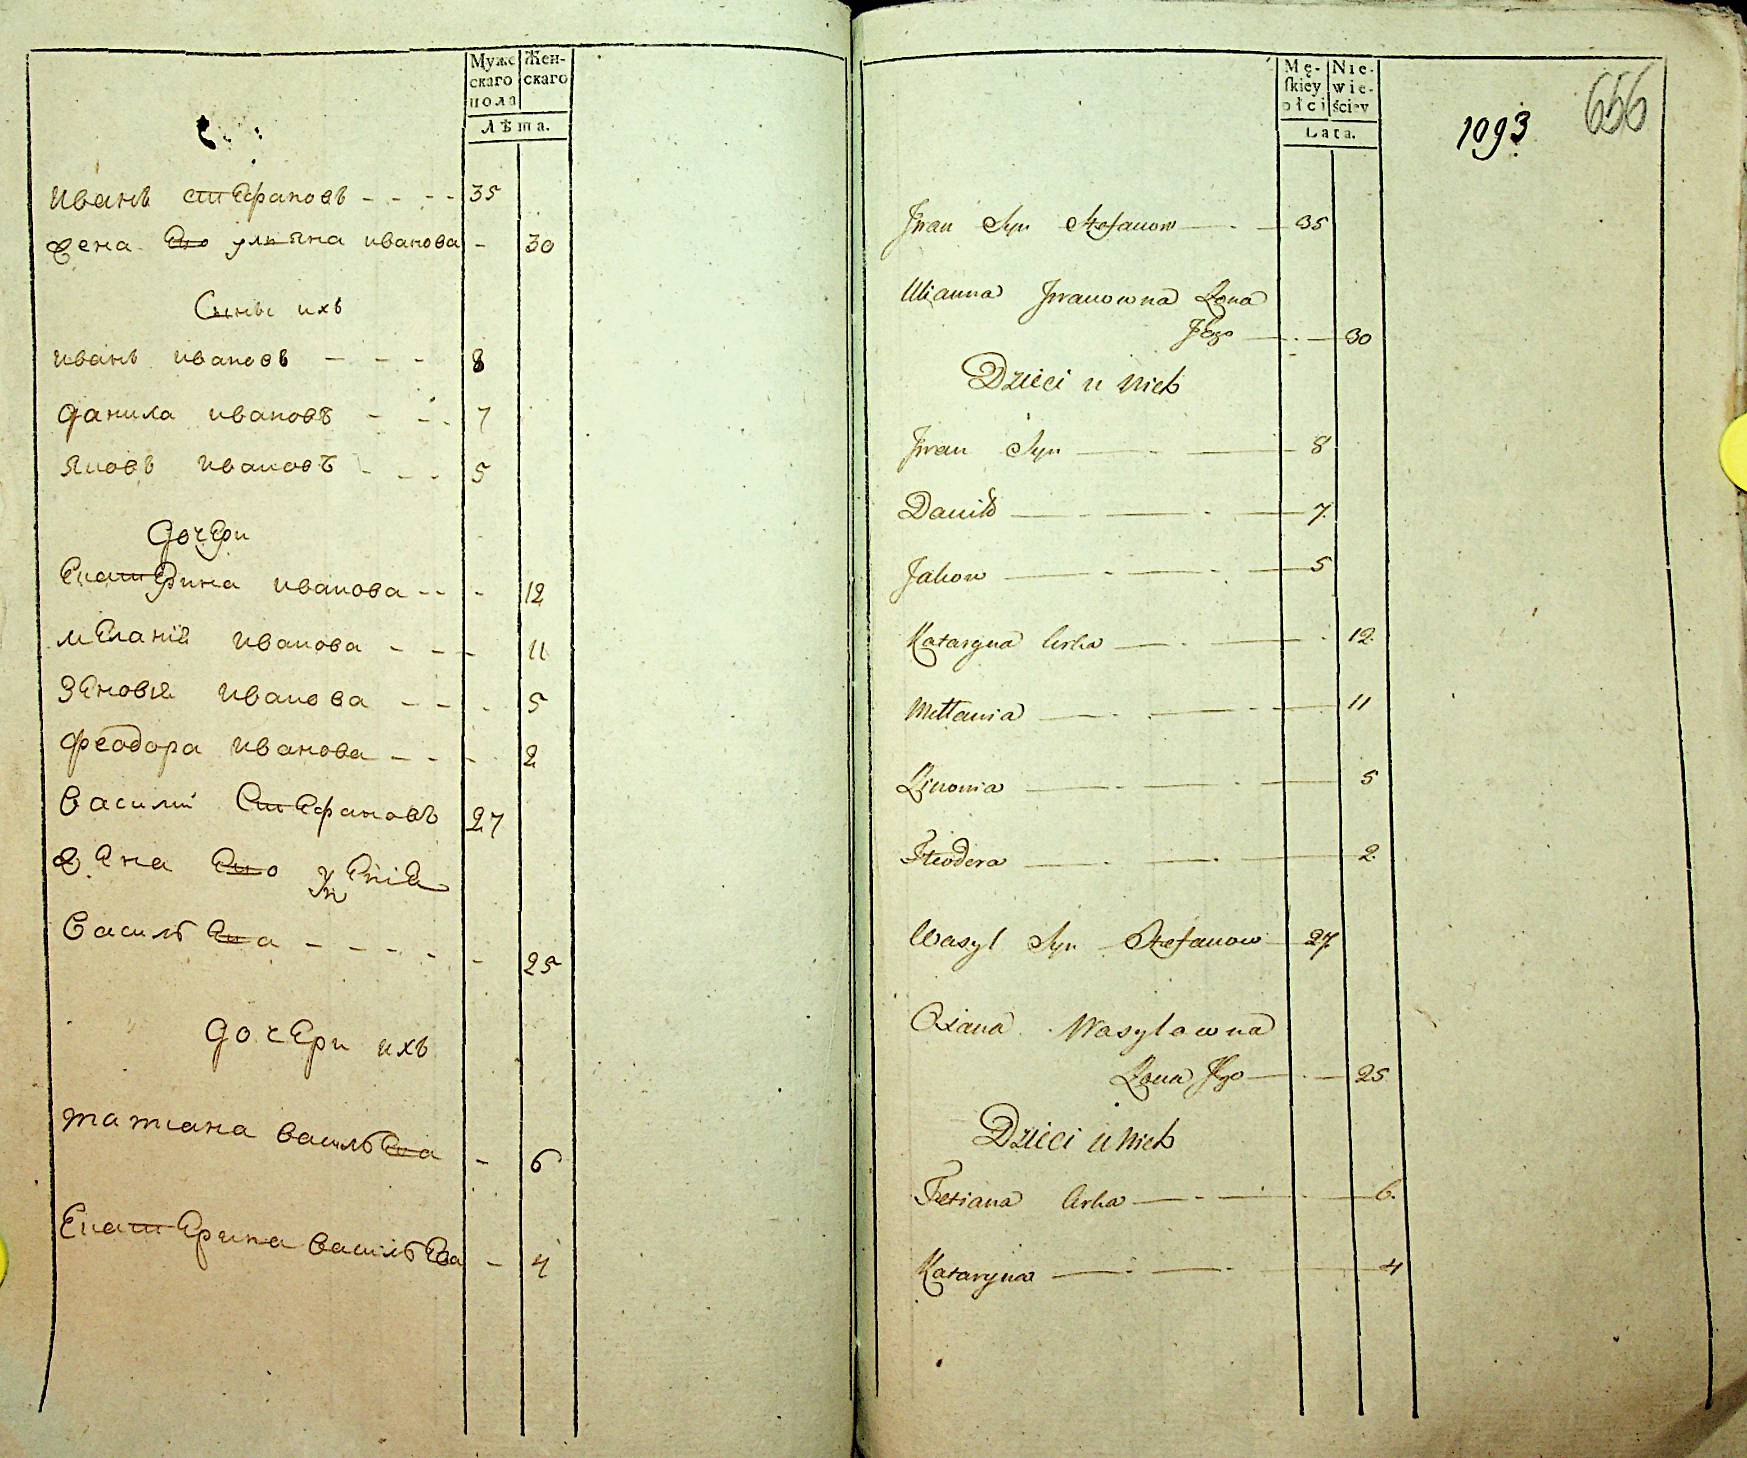 Мужс Жен-
скаго скаго
пола
Лѣта.
Иванъ Стефановъ - - - - 35
Жена Его ульяна иванова - 30
Сыны ихъ
иванъ ивановъ - - - 8
данила ивановъ - - - 7
Яковъ ивановъ - - - 5
дочери
Екатерина иванова - - - 12
меланія иванова - - - 11
Зеновія иванова - - - 5
феодора иванова - - - 2
василій Стефановъ 27
Жена Его
Васильева - - - - - 25
дочери ихъ
татиана васильева - 6
Екатерина васильева - 4
Mę- Nie-
skiey wie-
płci ściey
Lata.
1093
656
Jwan Syn Stefanow 35
Ulianna Jwanowna Żona
Jego 30
Dzieci u Nich
Jwan Syn 8
Daniło 7
Jakow 5
Kataryna Corka 12
Mellania 11
Zinowia 5
Fteodora 2
Wasyl Syn Stefanow 27
Oxana Wasylowna
Żona Jego 25
Dzieci u Nich
Tetiana Corka 6
Kataryna 4